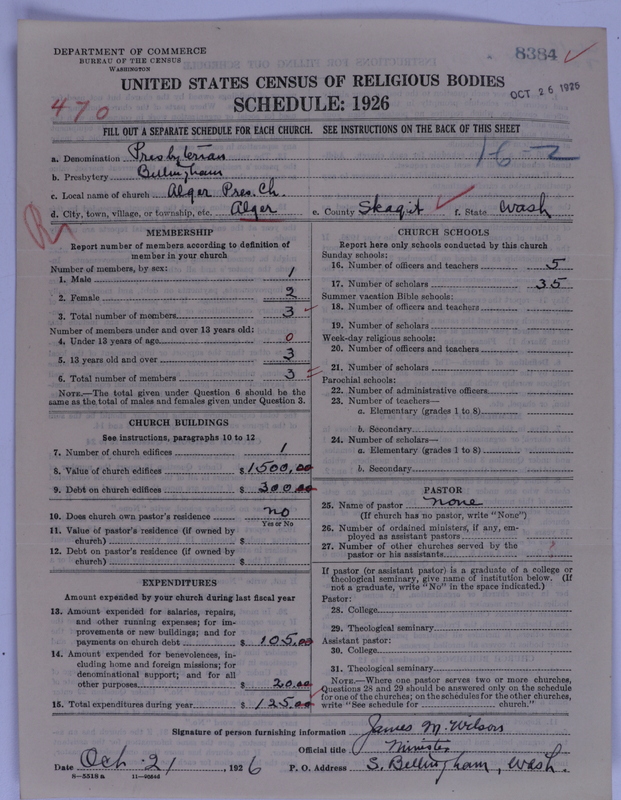 DEPARTMENT OF COMMERCE
BUREAU OF THE CENSUS
WASHINGTON
8384
UNITED STATES CENSUS OF RELIGIOUS BODIES
SCHEDULE: 1926
OCT 26 1926
470
FILL OUT A SEPARATE SCHEDULE FOR EACH CHURCH. SEE INSTRUCTIONS ON THE BACK OF THIS SHEET
16-2
a. Denomination Presbyterian
b. Presbytery Bellingham
c. Local name of church Alger Pres. Ch.
d. City, town, village, or township, etc. Alger e. County Skagit f. State Wash
MEMBERSHIP
Report number of members according to definition of
member in your church
Number of members, by sex:
1. Male 1
2. Female 2
3. Total number of members 3
Number of members under and over 13 years old:
4. Under 13 years of age 0
5. 13 years old and over 3
6. Total number of members 3
NOTE.—The total given under Question 6 should be
same as the total of males and females given under Question 3.
CHURCH BUILDINGS
See instructions, paragraphs 10 to 12
7. Number of church edifices 1
8. Value of church edifices $1500.00
9. Debt on church edifices $300.00
10. Does church own pastor's residence no
Yes or No
11. Value of pastor's residence (if owned by
church) $
12. Debt on pastor's residence (if owned by
church) $
EXPENDITURES
Amount expended by your church during last fiscal year
13. Amount expended for salaries, repairs,
and other running expenses; for im-
provements or new buildings; and for
payments on church debt $105.00
14. Amount expended for benevolences, in-
cluding home and foreign missions; for
denominational support; and for all
other purposes $20.00
15. Total expenditures during year $125.00
CHURCH SCHOOLS
Report here only schools conducted by this church
Sunday schools:
16. Number of officers and teachers 5
17. Number of scholars 35
Summer vacation Bible schools:
18. Number of officers and teachers
19. Number of scholars
Week-day religious schools:
20. Number of officers and teachers
21. Number of scholars
Parochial schools:
22. Number of administrative officers
23. Number of teachers—
a. Elementary (grades 1 to 8)
b. Secondary
24. Number of scholars—
a. Elementary (grades 1 to 8)
b. Secondary
PASTOR
25. Name of pastor none
(If church has no pastor, write "None")
26. Number of ordained ministers, if any, em-
ployed as assistant pastors
27. Number of other churches served by the
pastor or his assistants
If pastor (or assistant pastor) is a graduate of a college or
theological seminary, give name of institution below. (If
not a graduate, write "No" in the space indicated.)
Pastor:
28. College
29. Theological seminary
Assistant pastor:
30. College
31. Theological seminary
NOTE.—Where one pastor serves two or more churches,
Questions 28 and 29 should be answered only on the schedule
for one of the churches; on the schedules for the other churches,
write "See schedule for church."
Signature of person furnishing information James M. Wilson
Official title Minister
Date Oct 21, 1926 P. O. Address S. Bellingham, Wash.
8—5518 a